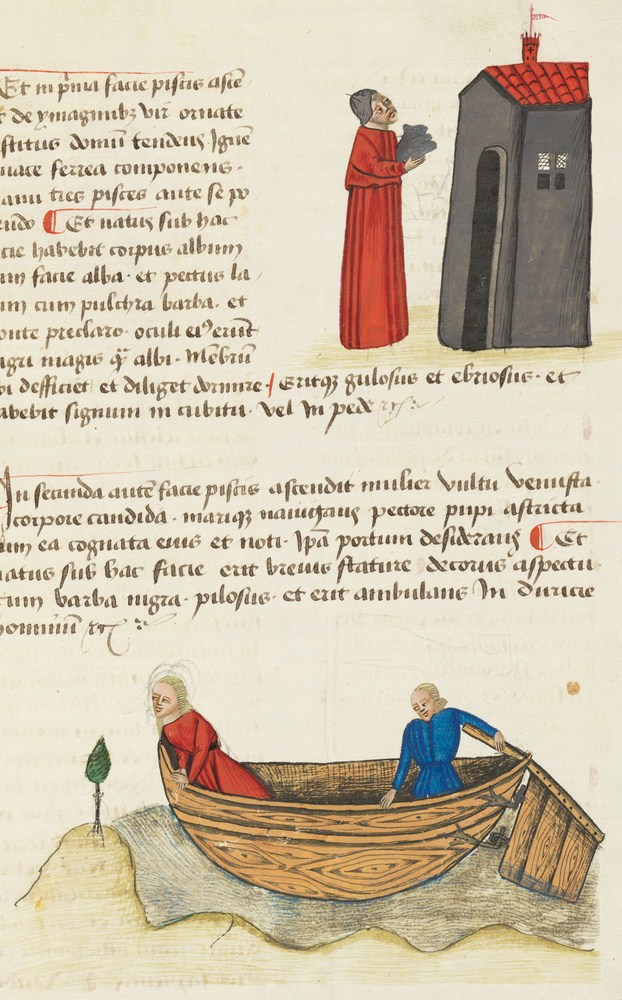 Et in p̄ma facie piscis asce
de ymaginibꝫ vir ornate
stitus domū tendens Igne
uace ferrea componens ·
tres pisces ante se po
endo ¶ Et natus sub hac
cie habebit corpus album
um facie alba · et pectus la
um cum pulchra barba · et
onte preclaro · oculi ei⁹ erūt
igri magis q̄ albi · Membrū
bi deficiet et diliget dormire / Eritqꝫ gulosus et ebriosus · et
abebit signum in cubitu · vel In pede
In secunda autē facie piscis ascendit mulier vultu venusta ·
corpore candida · mariqꝫ nauigans pectore pupi astricta
um ea cognata eius et noti · Ipā portum desiderans ¶ Et
natus sub hac facie erit breuis stature decorus aspectu
cum barba nigra · pilosus · et erit ambulans In duricie
hominum